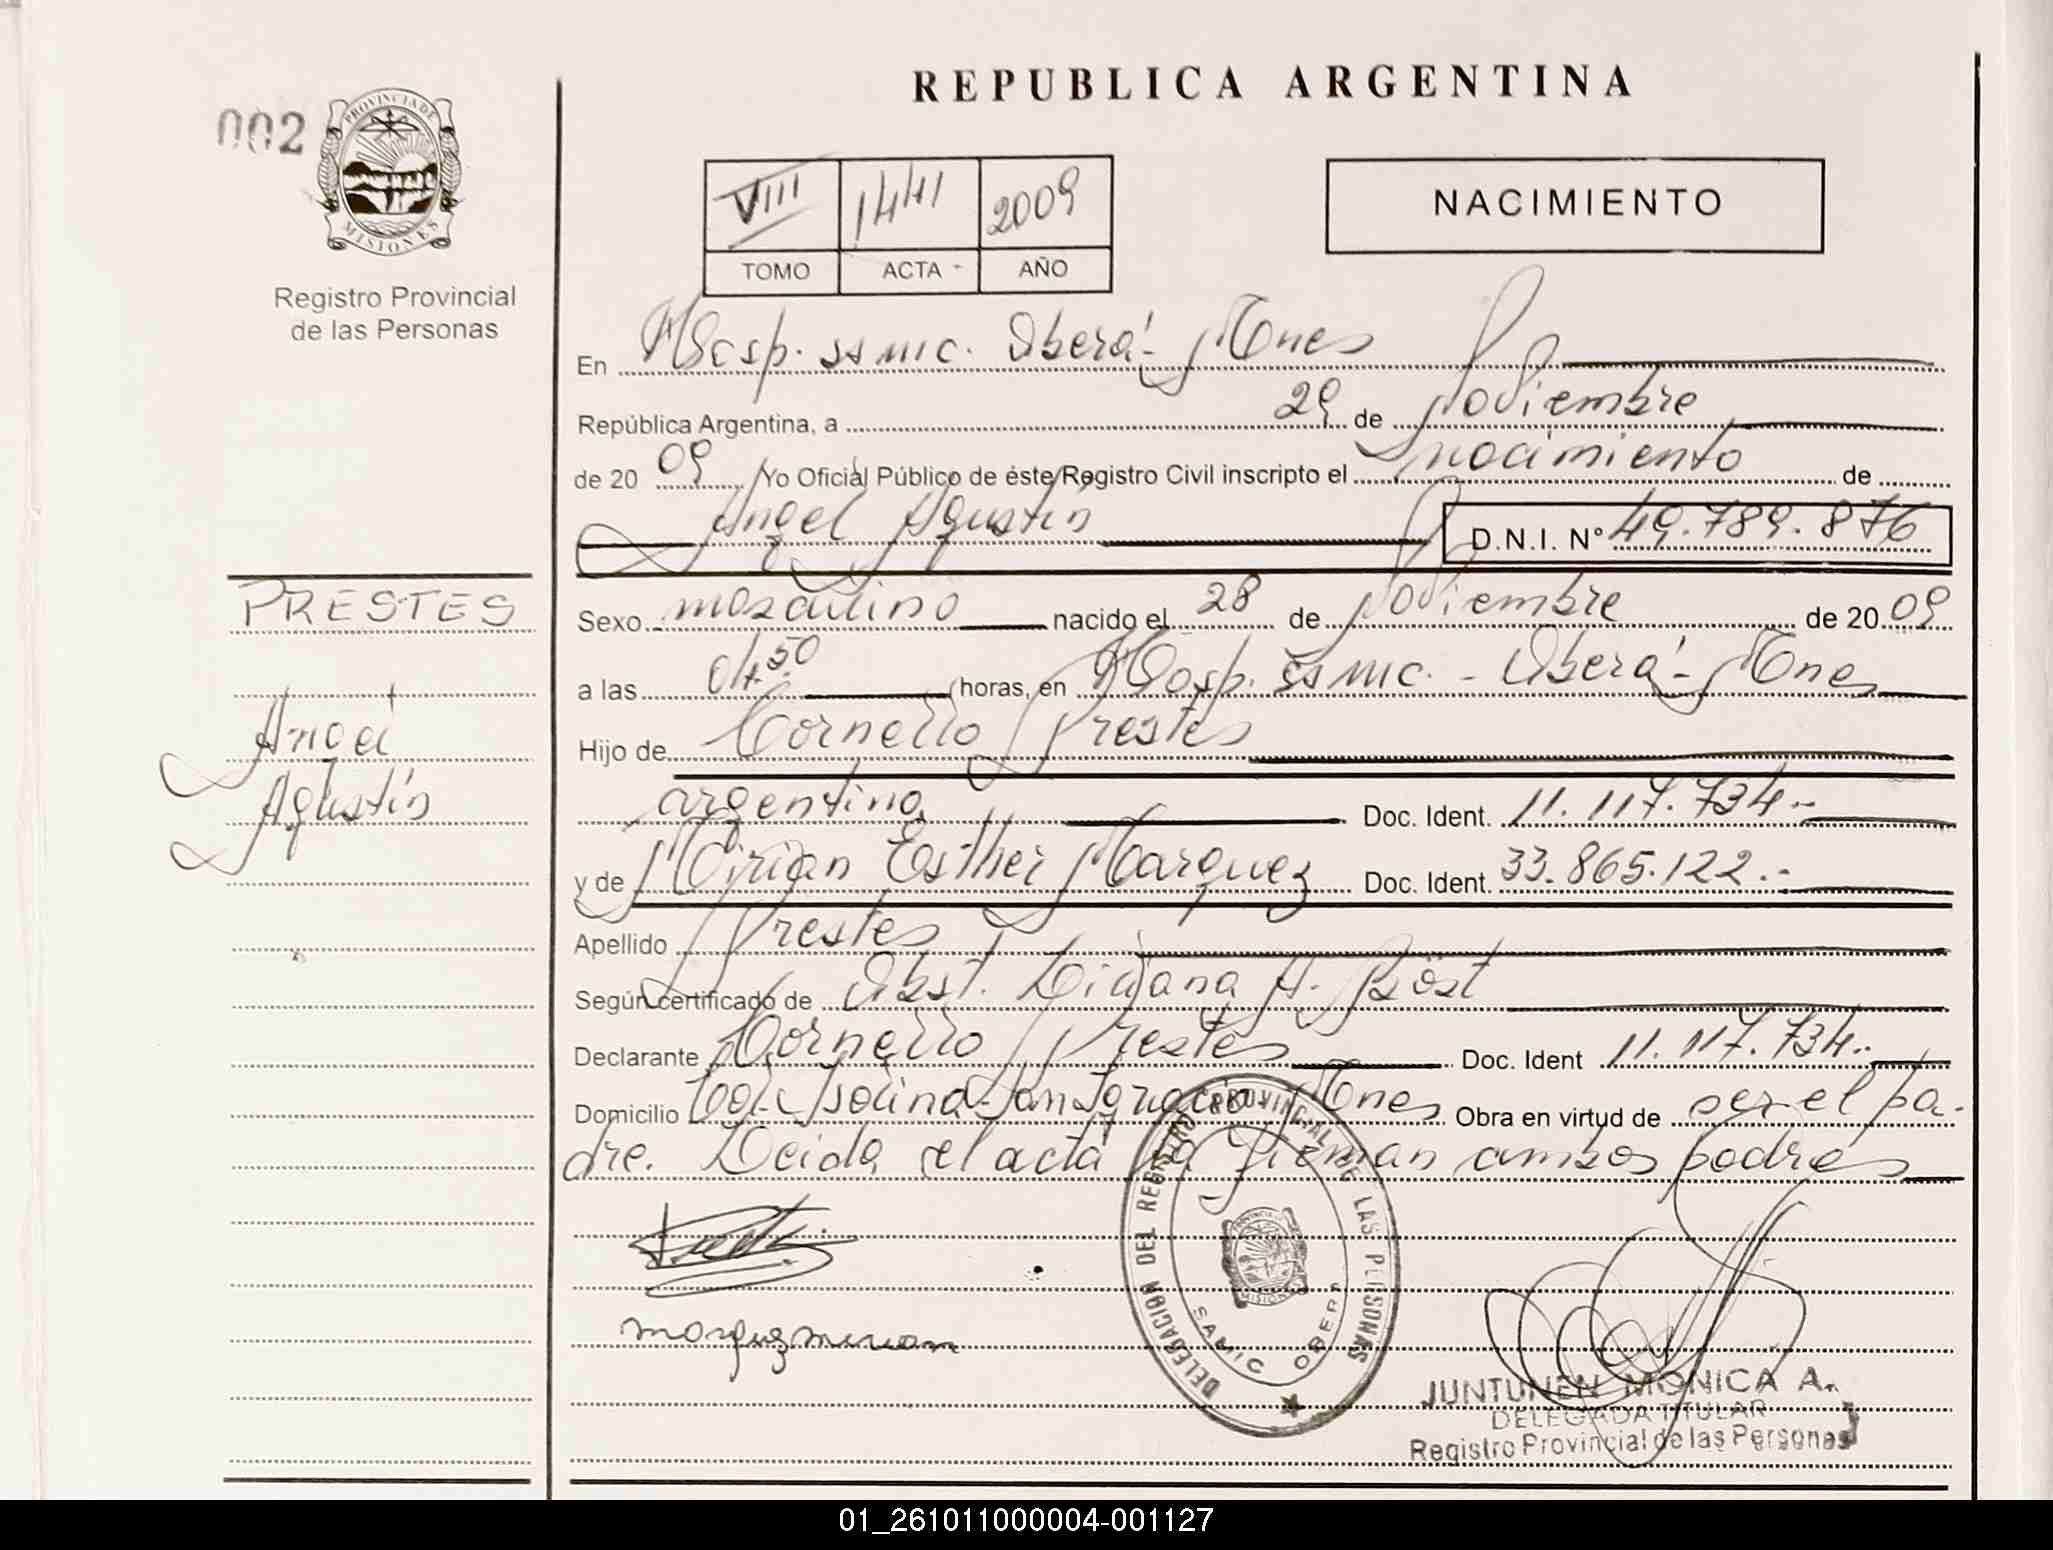 REPUBLICA ARGENTINA
002
PROVINCIA DE
MISIONES
Registro Provincial
de las Personas
VIII 1441 2009
TOMO ACTA AÑO
NACIMIENTO
En Hosp. ssmic. Oberá - Mnes
República Argentina, a 29 de Noviembre
de 20 09 Yo Oficial Público de éste Registro Civil inscripto el nacimiento de
Angel Agustín D.N.I. Nº 49.789.876
PRESTES
Angel
Agustín
Sexo masculino nacido el 28 de Noviembre de 20 09
a las 04.50 horas, en Hosp. ssmic. - Oberá - Mnes
Hijo de Cornelio Prestes
argentino Doc. Ident. 11.117.734.-
y de Mirian Esther Marquez Doc. Ident. 33.865.122.-
Apellido Prestes
Según certificado de Obst. A. Böst
Declarante Cornelio Prestes Doc. Ident 11.117.734.-
Domicilio Mnes Obra en virtud de ser el pa-
dre. Leida el acta la firman ambos padres
marquez mirian
DELEGACION DEL REGISTRO PROVINCIAL DE LAS PERSONAS
SAMIC OBERA
JUNTUNEN MONICA A.
DELEGADA TITULAR
Registro Provincial de las Personas
01_261011000004-001127